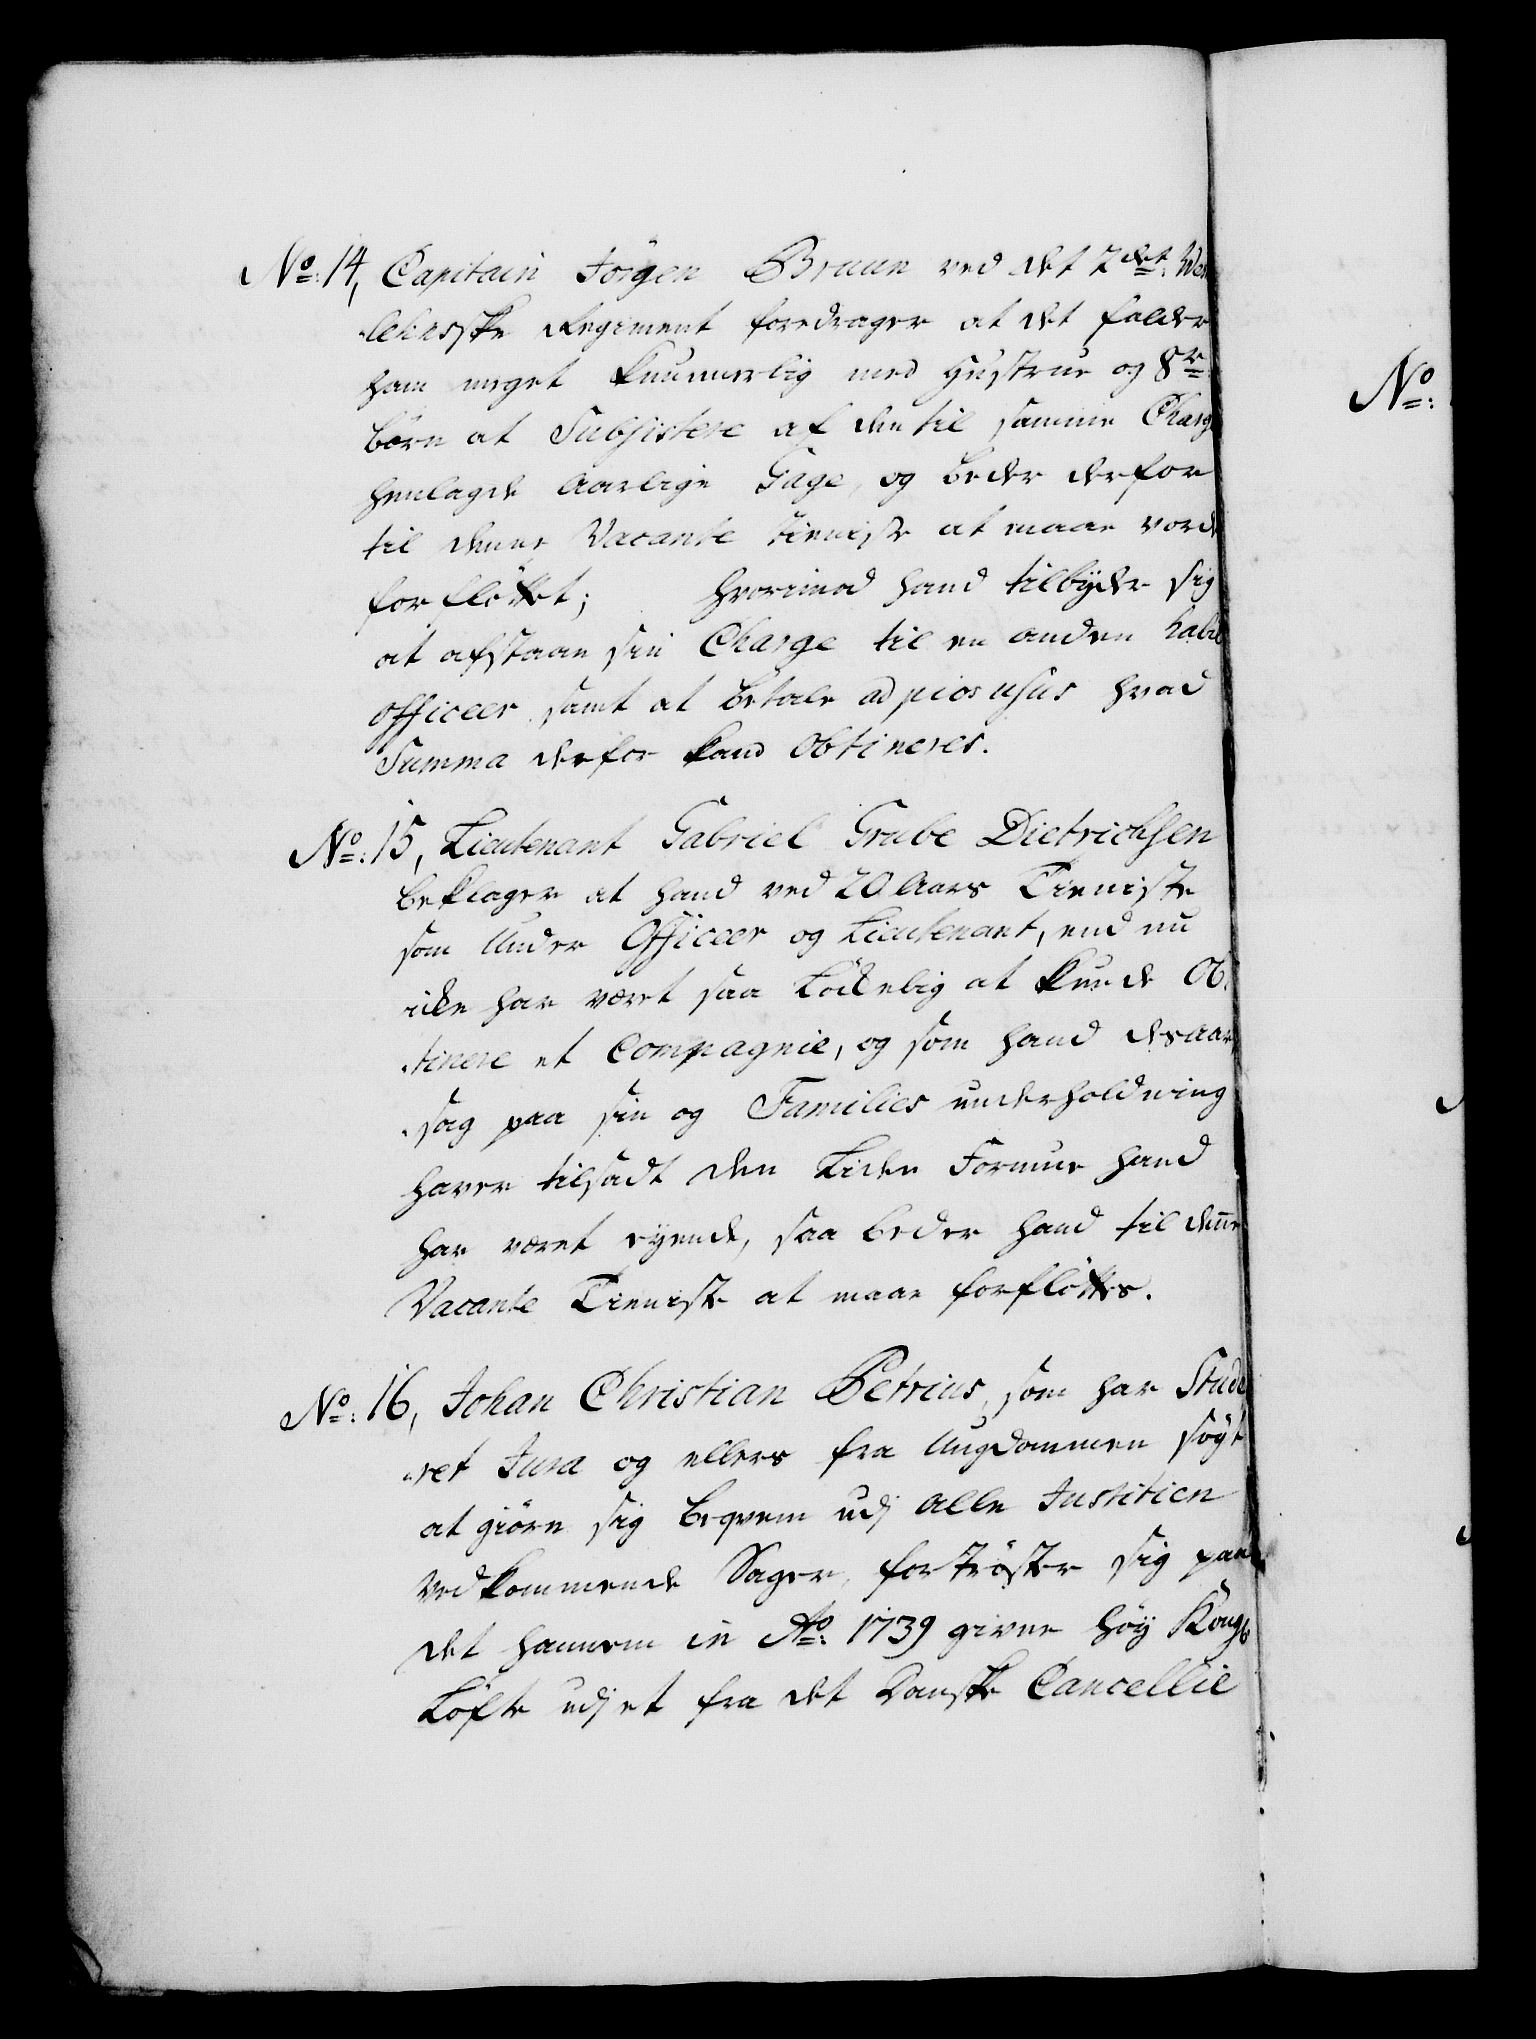 No: 14, Capitain Jörgen Bruun ved det 2det: Wes
-lehnsske Regiment foredrager at det falder
ham meget kummerlig med Hustrue og 8te
börn at Subsistere af den til samme Charg
henlagde Aarlige Gage, og beder derfor
til denne Vacante tieniste at maae vord
forflöttet; hvorimod hand tilbyder sig
at afstaae sin Charge til en anden habil
Officeer samt at betale ad pios usus hvad
Summa derfor kand obtineres.
No: 15, Lieutenant Gabriel Grube Dietrichsen
beklager at hand ved 20 Aars Tieniste
som Under Officeer og Lieutenant, end nu
icke har været saa Löckelig at kunde Ob-
-tinere et Compagnie, og som hand desaar
-sag paa sin og Families underholdning
haver tilsadt den Liden Formue hand
har været eyende, saa beder hand til denne
Vacante Tieniste at maae forflöttes.
No: 16, Johan Christian Petrius, som har Stude
-ret Jura og ellers fra Ungdommen söyt
at giöre sig beqvem udj alle Justitien
vedkommende Sager, fortröster sig paa
det hannem in Ao: 1739 givne höy Kongl
Löfte udj et fra det Danske Cancellie
No: